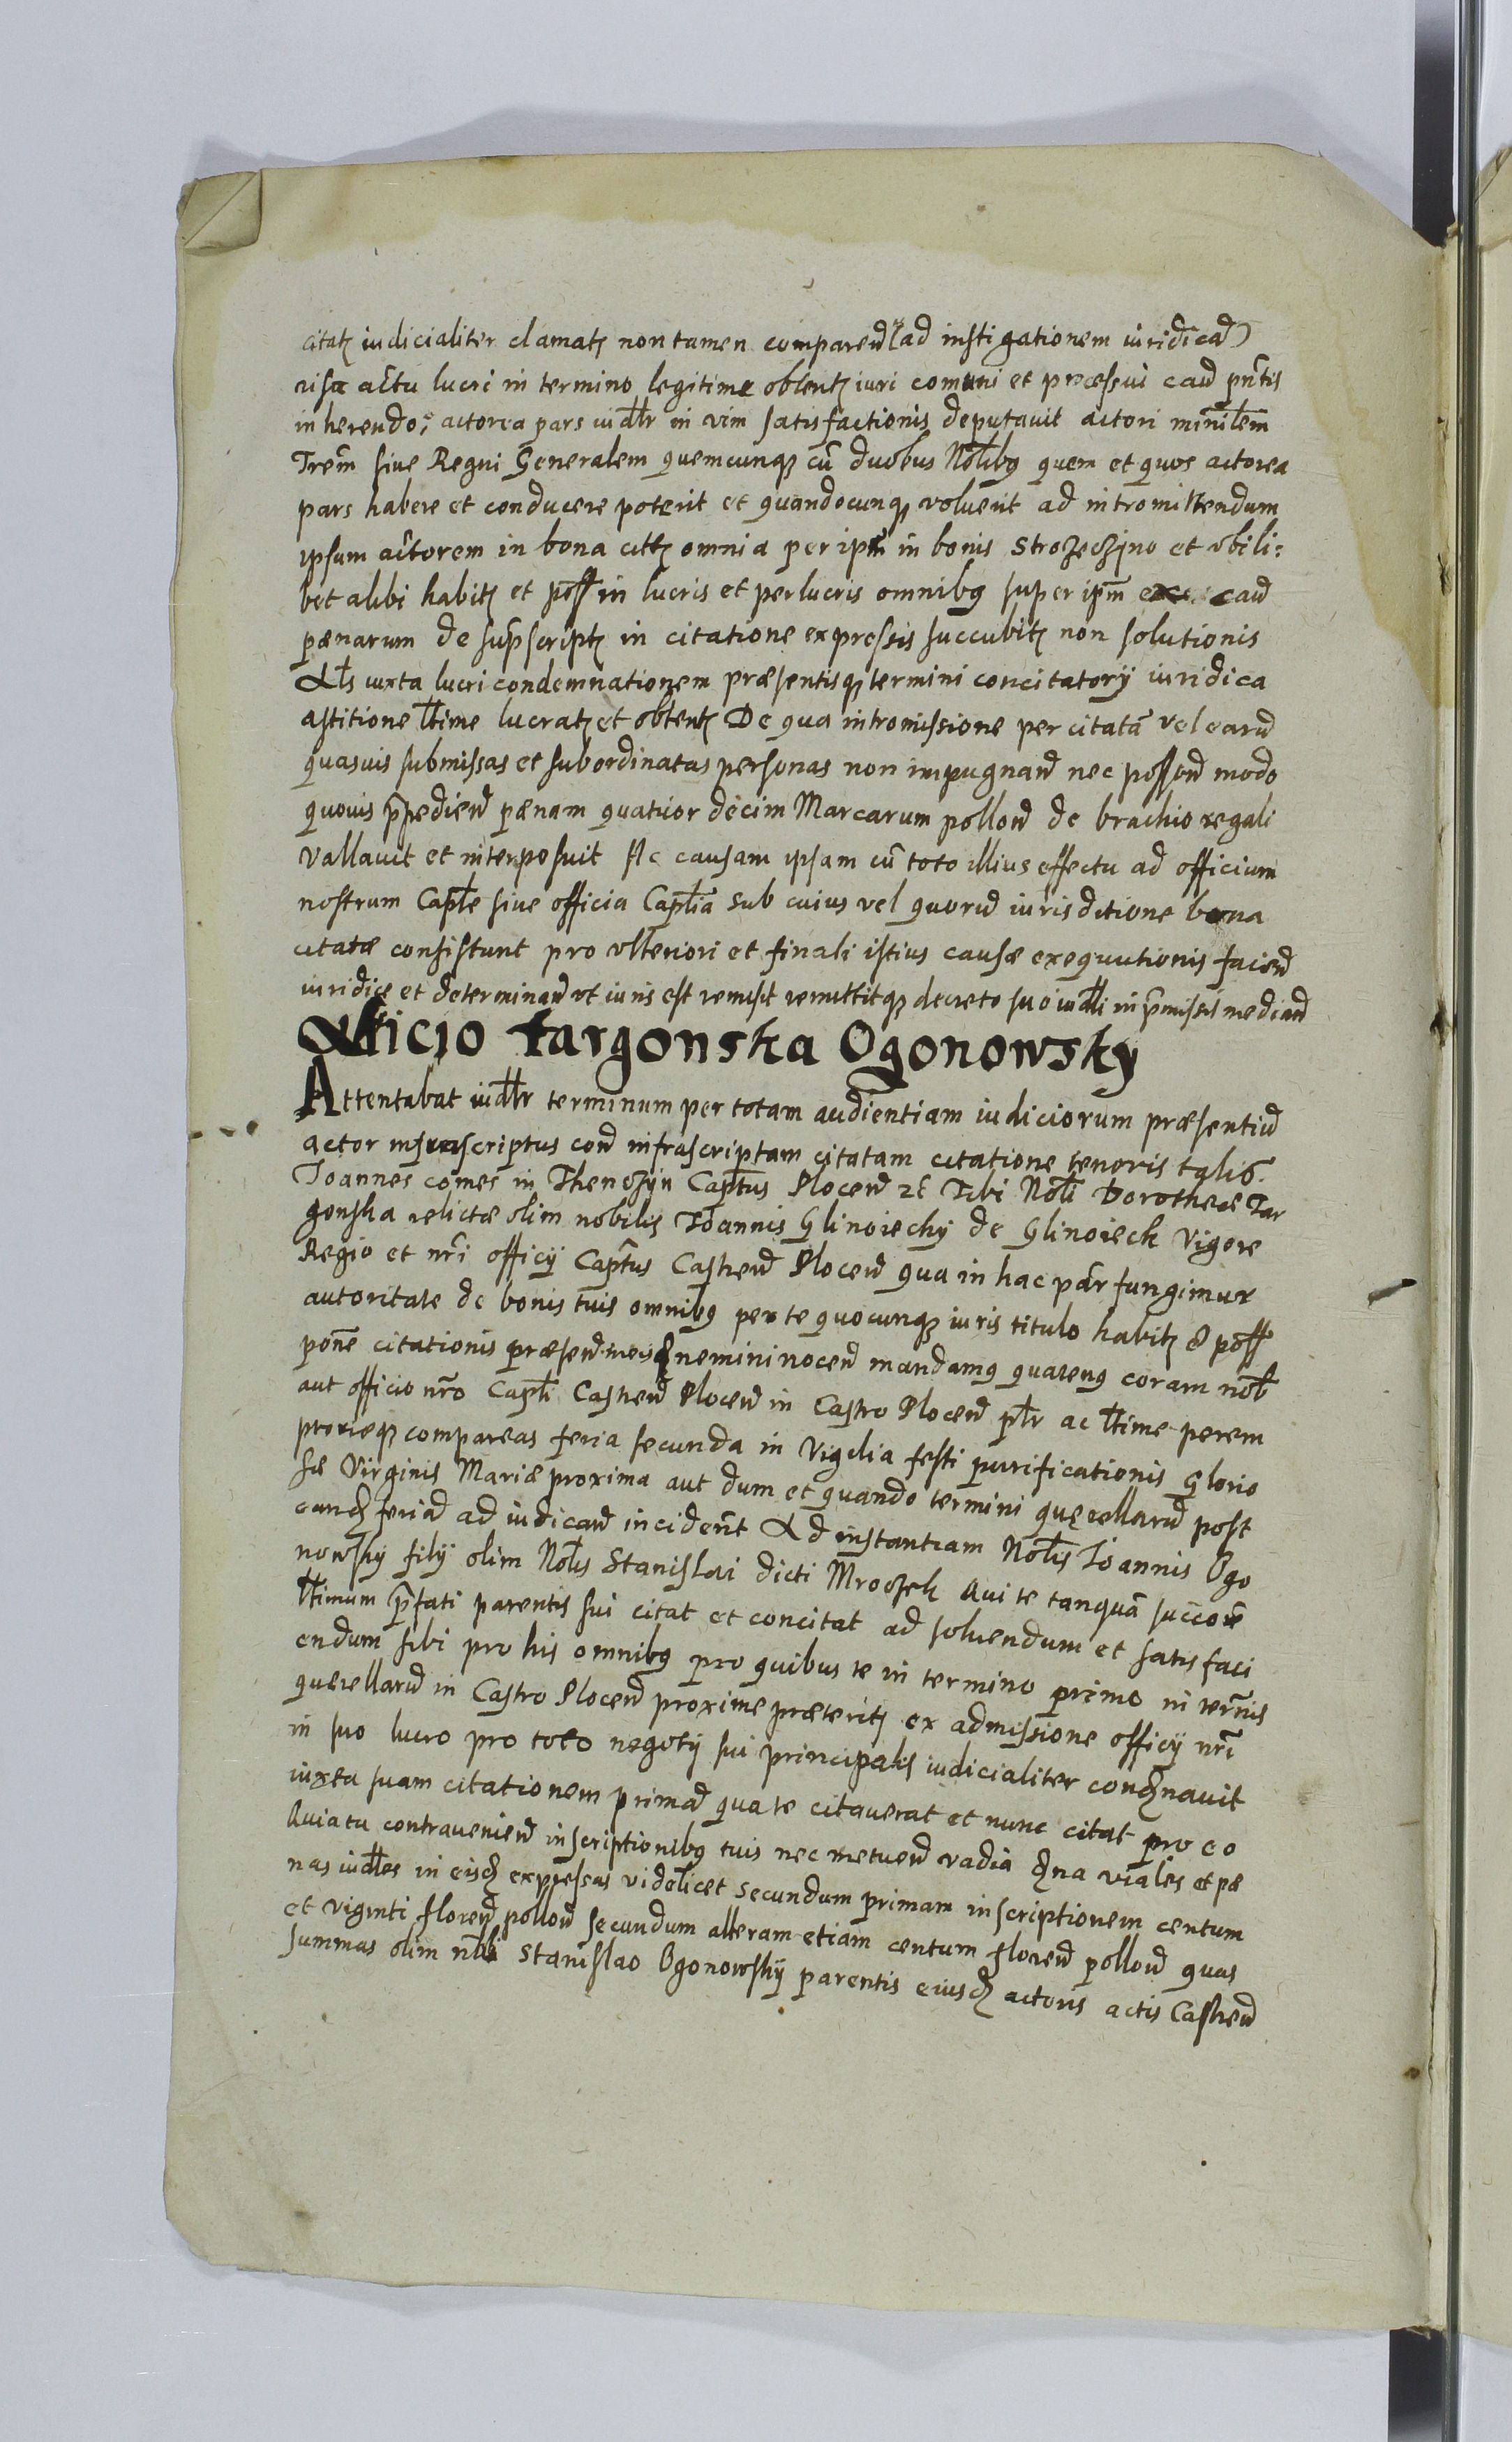 citatę iudicialiter clamatę non tamen comparen (ad instigationem iuridicā)
actu lucri in termino legitime obtentę iuri comuni et processui cau pntis
inherendo, actorea pars iudlr in vim satisfactionis deputavit actori minīlem
Trem siue Regni Generalem quemcunq cū duobus Nolibq quem et quos actorea
pars habere et conducere poterit et quandocunq voluerit ad intromittendum
ipsum actorem in bona cittę omnia per ipm in bonis Strożeczino et vbili:
bet alibi habitę et poss in lucris et perlucris omnibq super ipm cau
pænarum de supscriptę in citatione expressis succubitę non solutionis
Als iuxta lucri condemnationem præsentisq termini concitatorÿ iuridica
astitione ltime lucratę et obtentę De qua intromissione per citatā vel earu
quasuis submissas et subordinatas personas non impugnan nec posson modo
quouis p̄pedien pænam quatuor decim Marcarum pollon de brachio regali
Vallauit et interposuit Ac causam ipsam cū toto illius effectu ad officium
nostrum Caple siue officia Caplia sub cuius vel quoru iurisditione bona
citatæ consistunt pro vlteriori et finali istius causæ exequutionis facien
iuridice et determinan vt iuris est remisit remittitq decreto suo iudli in p̄missis median
Afficio Targonska Ogonowsky
Attentabat iudlr terminum per totam audientiam iudiciorum præsentiu
actor infrascriptus con infrascriptam citatam citatione tenoris talis.
Joannes comes in Thenczÿn Captus Plocen ꝛc Tibi Noli Dorotheæ Tar
gonska relictæ olim nobilis Joannis Glinoiechÿ de Glinoieck Vigore
Regio et nri officÿ Captus Castren Plocen qua in hac par fungimur
autoritate de bonis tuis omnibq per te quocunq iuris titulo habitę & poss
pone citationis præsen nemini nocen mandamq quatenq coram nob
aut officio nro Capli Castren Plocen in Castro Plocen plr ac ltime perem
ptorieq compareas feria secunda in Vigilia festi purificationis Glorio
sæ Virginis Mariæ proxima aut dum et quando termini quęrellaru post
eand feriā ad iudican inciderit Ad instantiam Nolis Joannis Ogo
nowskÿ filÿ olim Nolis Stanislai dicti Mroczek Qui te tanquā succore
ltimum p̄fati parentis sui citat et concitat ad soluendum et satisfaci
endum sibi pro his omnibq pro quibus te in termino primo in termis
quærellaru in Castro Plocen proxime præteritę ex admissione officÿ nri
in suo lucro pro toto negotÿ sui principalis iudicialiter condnauit
iuxta suam citationem primā qua te citauerat et nunc citat pro eo
Quia tu contrauenien inscriptionibq tuis nec metuen vadia dna viales et pæ
nas iudles in eisd expressas videlicet secundum primam inscriptionem centum
et viginti floren pollon secundum alteram etiam centum floren pollon quas
summas olim nbli Stanislao Ogonowskÿ parentis eiusd actoris actis Castren